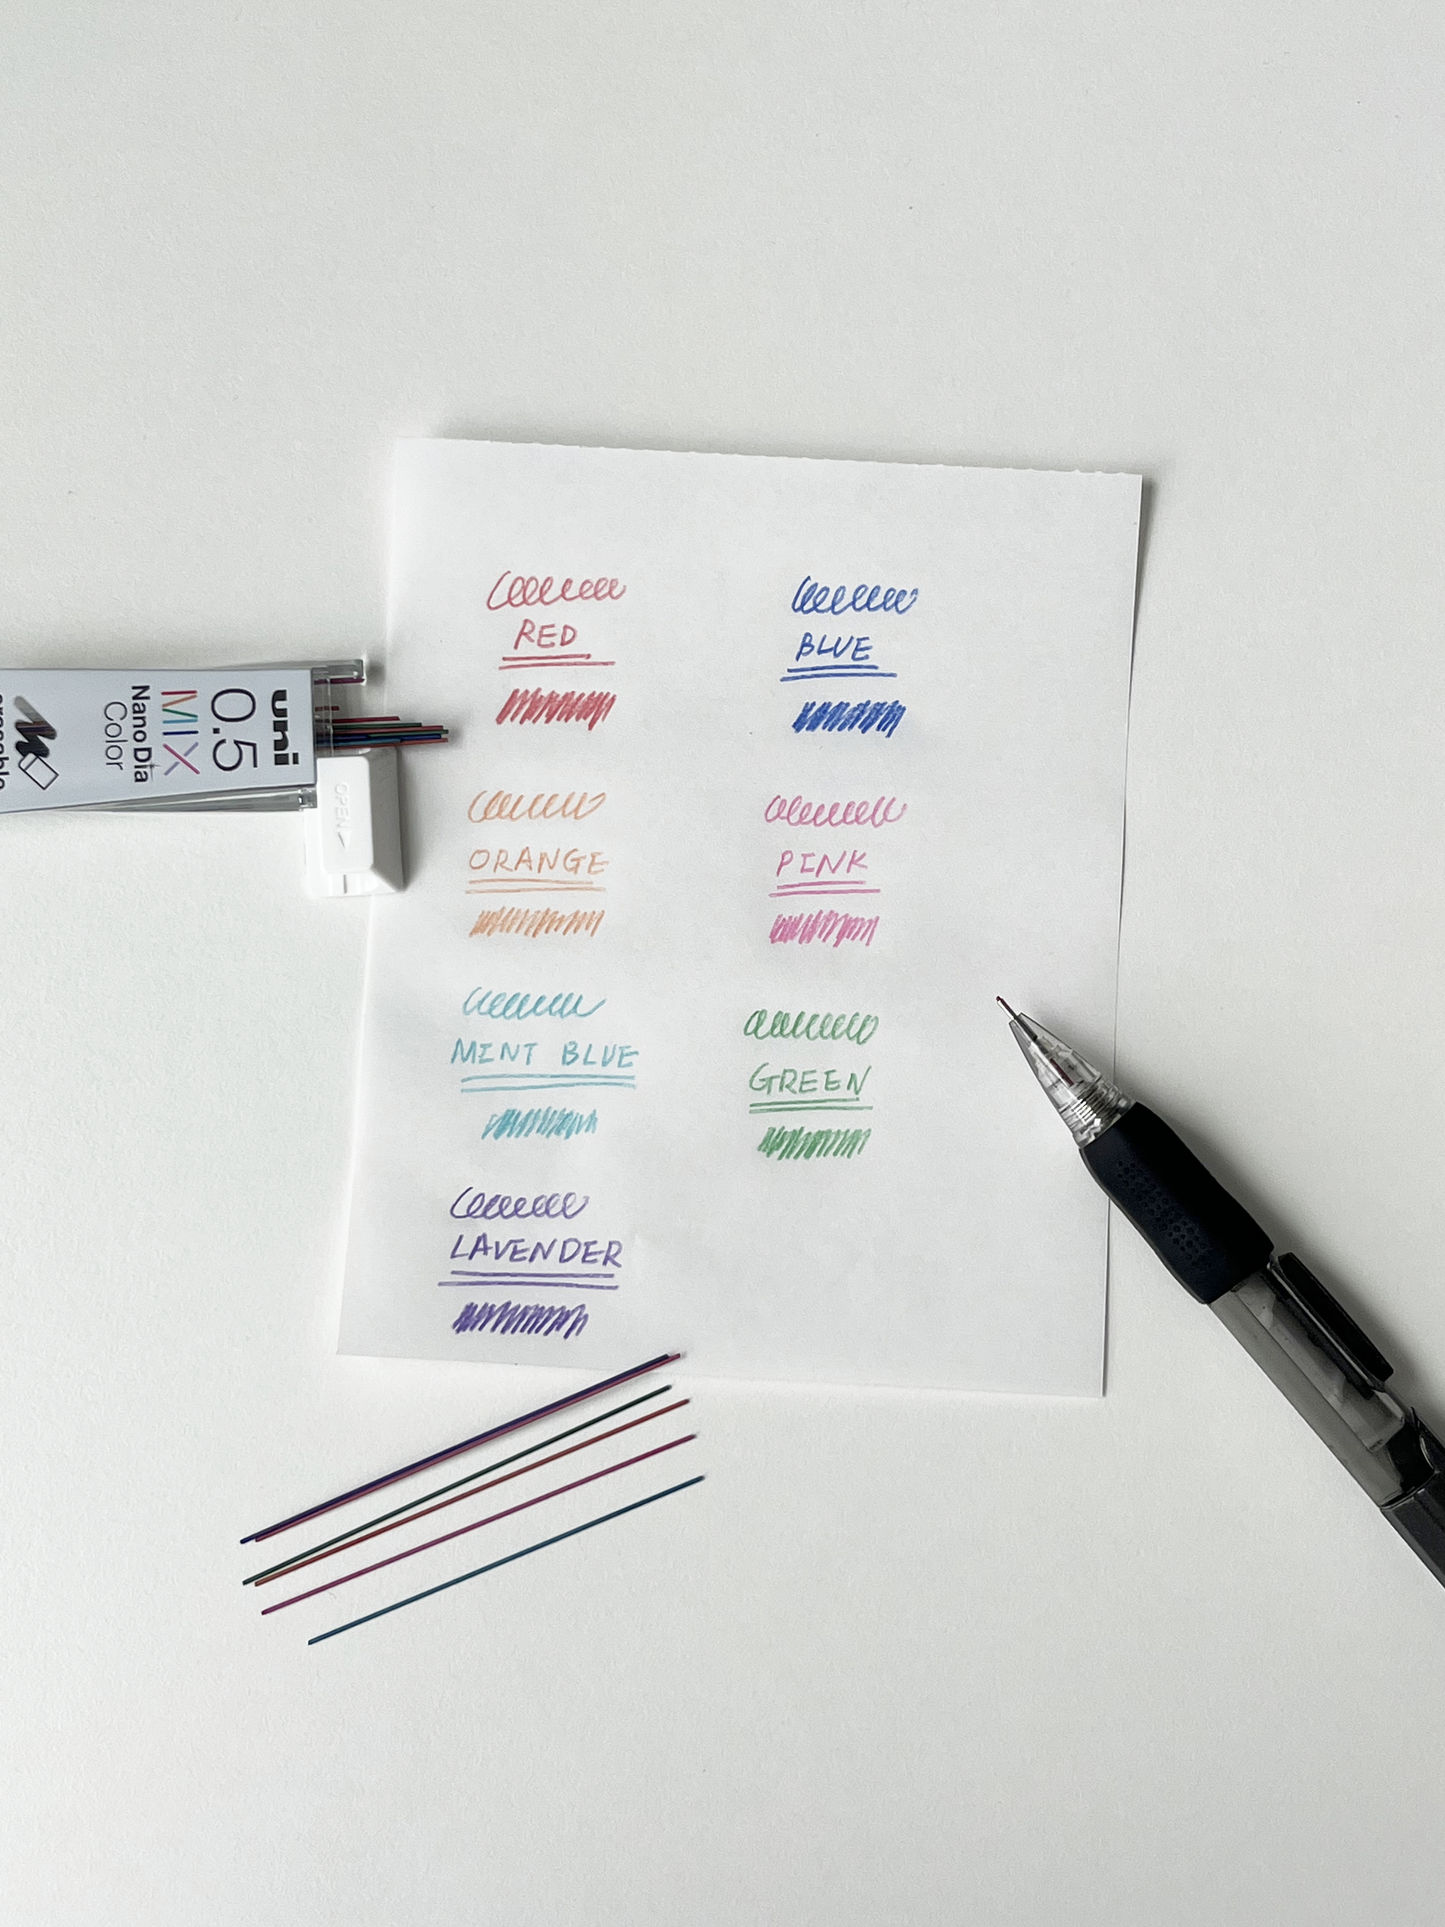 uni
0.5
MIX
Nano Dia
Color
erasable
OPEN
RED
BLUE
ORANGE
PINK
MINT BLUE
GREEN
LAVENDER